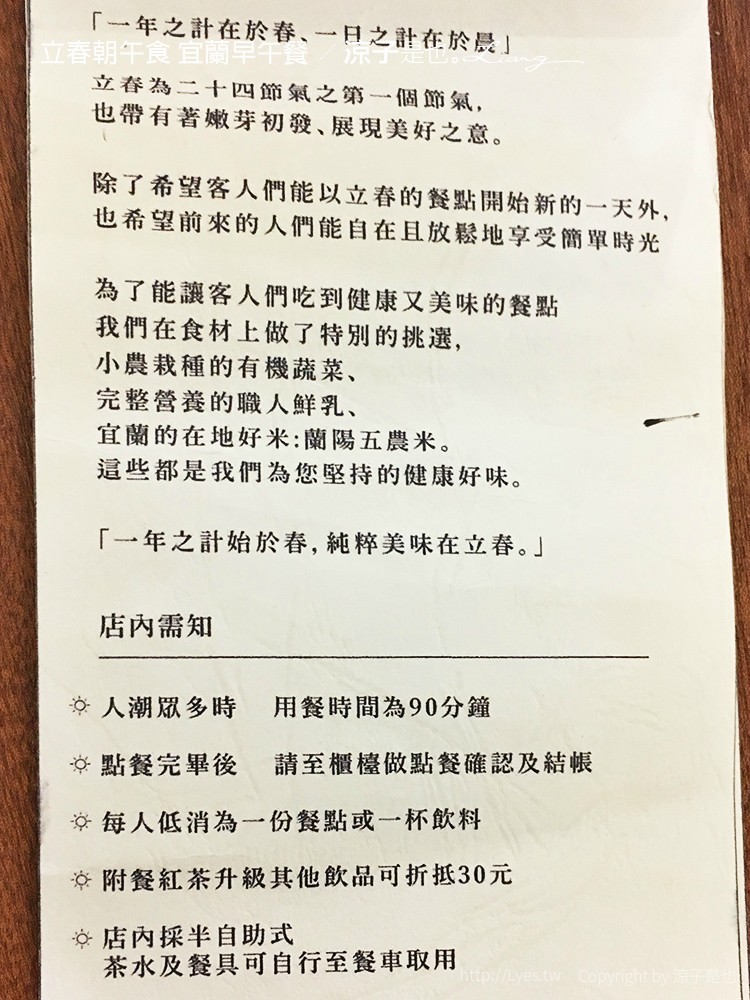 「一年之計在於春、一日之計在於晨」
立春朝午食 宜蘭早午餐 ╱ 涼子是也。Liang
立春為二十四節氣之第一個節氣，
也帶有著嫩芽初發、展現美好之意。
除了希望客人們能以立春的餐點開始新的一天外，
也希望前來的人們能自在且放鬆地享受簡單時光
為了能讓客人們吃到健康又美味的餐點
我們在食材上做了特別的挑選，
小農栽種的有機蔬菜、
完整營養的職人鮮乳、
宜蘭的在地好米:蘭陽五農米。
這些都是我們為您堅持的健康好味。
「一年之計始於春，純粹美味在立春。」
店內需知
人潮眾多時 用餐時間為90分鐘
點餐完畢後 請至櫃檯做點餐確認及結帳
每人低消為一份餐點或一杯飲料
附餐紅茶升級其他飲品可折抵30元
店內採半自助式
茶水及餐具可自行至餐車取用
http://Lyes.tw Copyright by 涼子是也